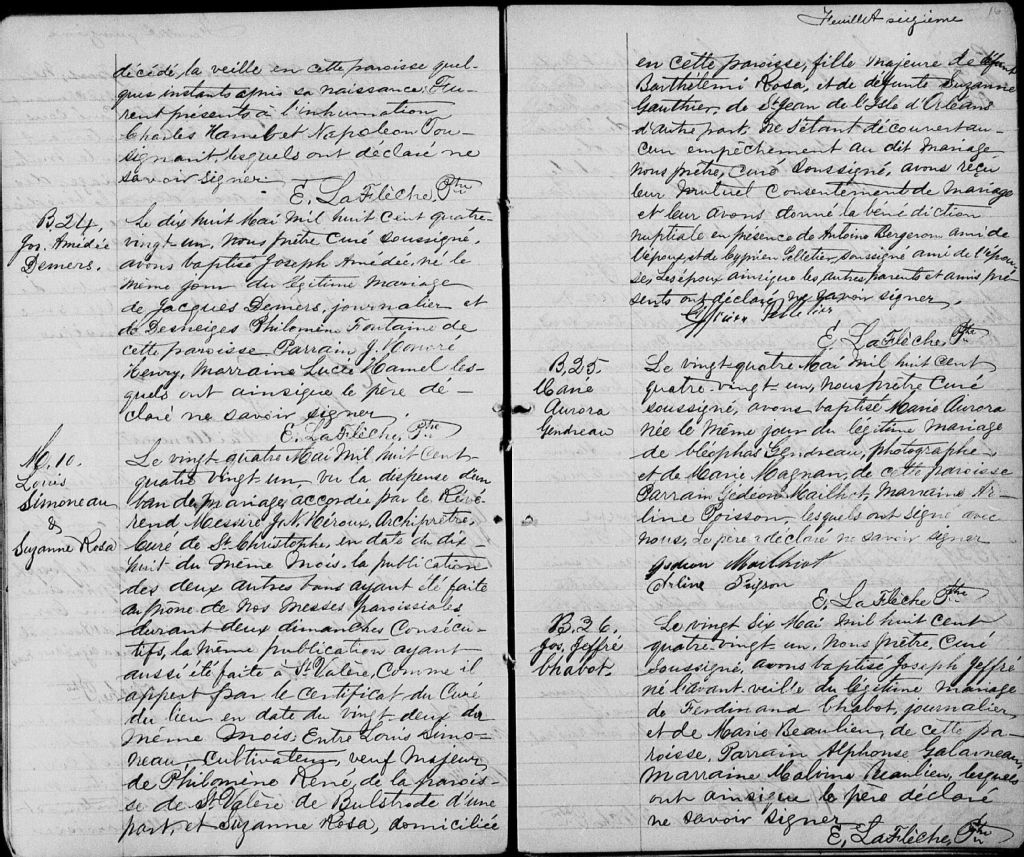 décédé la veille en cette paroisse quel-
ques instants après sa naissance. Fu-
rent présents à l'inhumation
Charles Hamel et Napoleon Tou-
signant, lesquels ont déclaré ne
savoir signer.
E. LaFlèche, Ptre
B. 24.
Jos. Amédée
Demers.
Le dix huit Mai Mil huit cent quatre-
vingt un, nous prêtre curé soussigné,
avons baptisé Joseph Amédée, né le
même jour du légitime mariage
de Jacques Demers, journalier et
de Desneiges Philomène Fontaine de
cette paroisse Parrain J. Honoré
Henry, Marraine Lucie Hamel les-
quels ont ainsi que le père dé-
claré ne savoir signer.
E. LaFlèche, Ptre
M. 10.
Louis
Simoneau
&
Suzanne Rosa
Le vingt-quatre Mai Mil huit cent
quatre vingt un, vu la dispense d'un
ban de mariage accordée par le Révé-
rend Messire J. N. Héroux, Archiprêtre,
Curé de St. Christophe, en date du dix-
huit du même mois, la publication
des deux autres bans ayant été faite
au prône de nos Messes paroissiales
durant deux dimanches consécu-
tifs, la même publication ayant
aussi été faite à St. Valère, comme il
appert par le certificat du Curé
du lieu en date du vingt deux du
même mois, Entre Louis Simo-
neau, cultivateur, veuf majeur,
de Philomène René, de la parois-
se de St. Valère de Bulstrode d'une
part, et Suzanne Rosa, domiciliée
16
Feuillet seizième
en cette paroisse, fille majeure de défunt
Barthélémi Rosa, et de défunte Suzanne
Gauthier, de St Jean de l'Isle d'Orléans
d'autre part, Ne s'étant découvert au-
cun empêchement au dit mariage
nous prêtre, curé soussigné, avons reçu
leur mutuel consentement de mariage
et leur avons donné la bénédiction
nuptiale en présence de Antoine Bergeron ami de
l'époux, et de Cyprien Pelletier, soussigné ami de l'épou-
se. Les époux ainsi que les autres parents et amis pré-
sents ont déclaré ne savoir signer.
Cyprien Pelletier
E. LaFlèche, Ptre
B. 25.
Marie
Aurora
Gendreau
Le vingt-quatre Mai mil huit cent
quatre-vingt un, nous prêtre curé
soussigné, avons baptisé Marie Aurora
née le même jour du légitime mariage
de Cléophas Gendreau, photographe
et de Marie Magnan, de cette paroisse
Parrain Gedeon Mailhot, Marraine Ar-
line Poisson, lesquels ont signé avec
nous, Le père a déclaré ne savoir signer
Gedeon Mailhiot
Arline Poisson
E. LaFlèche Ptre
B. 26.
Jos. Jeffré
Chabot.
Le vingt six Mai mil huit cent
quatre-vingt un, nous prêtre, curé
soussigné, avons baptisé Joseph Jeffré
né l'avant veille du légitime mariage
de Ferdinand Chabot, journalier,
et de Marie Beaulieu, de cette pa-
roisse, Parrain Alphonse Galarneau,
Marraine Malvina Beaulieu, lesquels
ont ainsi que le père déclaré
ne savoir signer
E. LaFlèche, Ptre